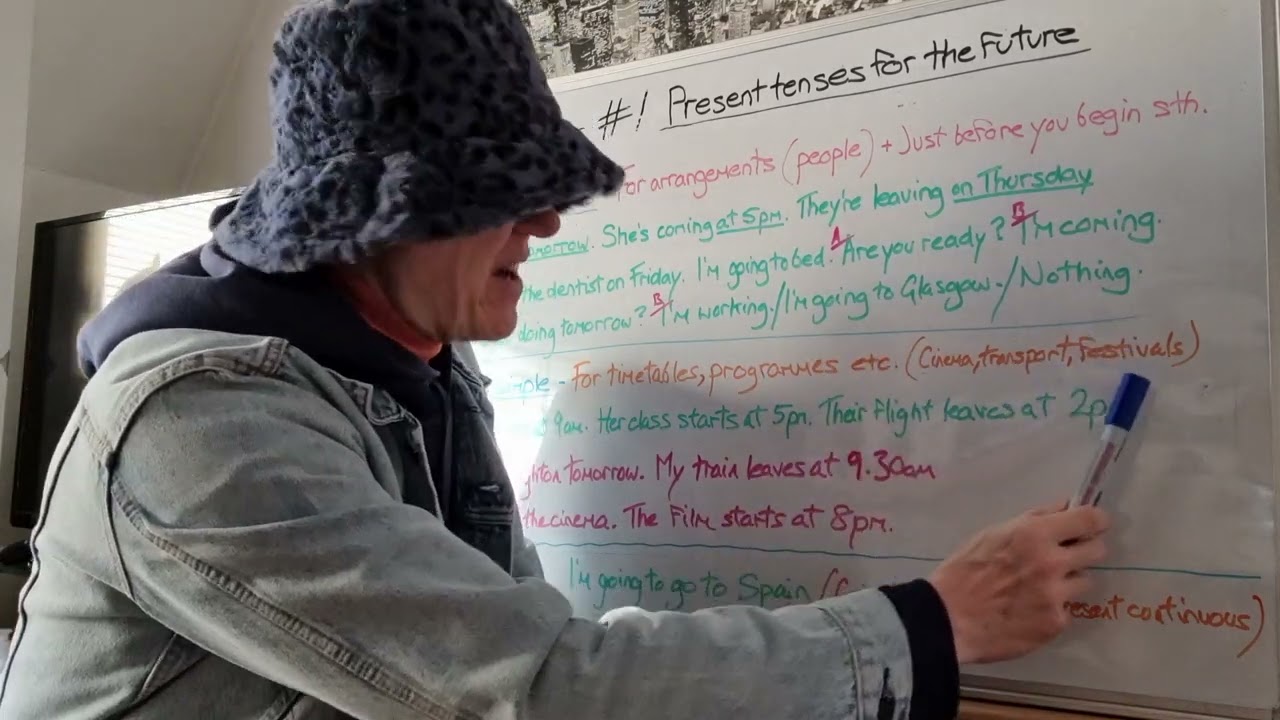 #! Present tenses for the Future
For arrangements (people) + Just before you begin sth.
She's coming at 5pm. They're leaving on Thursday
the dentist on Friday. I'm going to bed. A Are you ready? B I'm coming.
doing tomorrow? B I'm working./I'm going to Glasgow./Nothing.
- For timetables, programmes etc. (Cinema, transport, festivals)
9am. Her class starts at 5pm. Their flight leaves at 2p
tomorrow. My train leaves at 9.30am
the cinema. The film starts at 8pm.
I'm going to go to Spain / continuous)